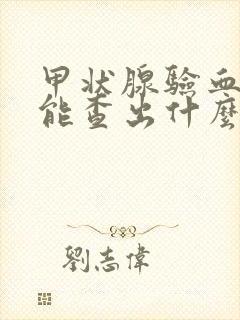 甲状腺验血
能查出什麽
劉志偉